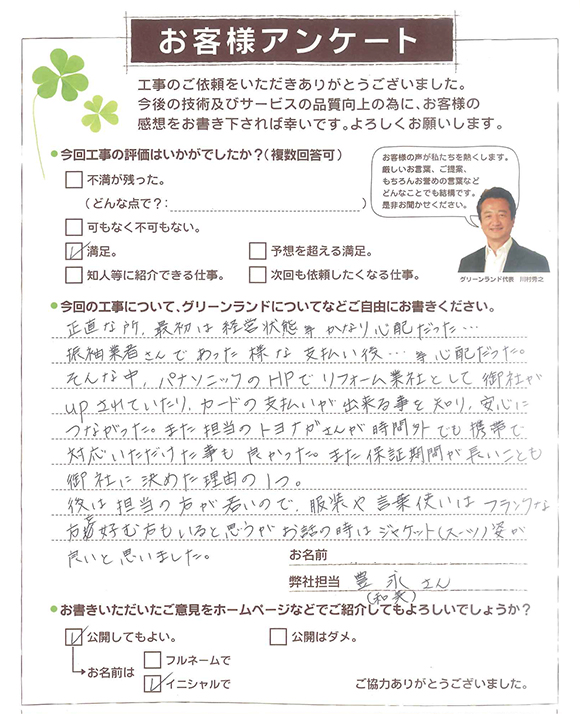 お客様アンケート
工事のご依頼をいただきありがとうございました。
今後の技術及びサービスの品質向上の為に、お客様の
感想をお書き下されば幸いです。よろしくお願いします。
●今回工事の評価はいかがでしたか？（複数回答可）
不満が残った。
（どんな点で？：　）
可もなく不可もない。
満足。
予想を超える満足。
知人等に紹介できる仕事。
次回も依頼したくなる仕事。
お客様の声が私たちを熱くします。
厳しいお言葉、ご提案、
もちろんお誉めの言葉など
どんなことでも結構です。
是非お聞かせください。
グリーンランド代表　川村秀之
●今回の工事について、グリーンランドについてなどご自由にお書きください。
正直な所、最初は経営状態等かなり心配だった…
振袖業者さんであった様な支払い後…等心配だった。
そんな中、パナソニックのHPでリフォーム業社として御社が
upされていたり、カードの支払いが出来る事を知り、安心に
つながった。また担当のトヨナガさんが時間外でも携帯で
対応いただけた事も良かった。また保証期間が長いことも
御社に決めた理由の1つ。
後は担当の方が若いので、服装や言葉使いはフランクな
方が好む方もいると思うがお話の時はジャケット(スーツ)姿が
良いと思いました。
お名前
弊社担当　豊永さん
(和英)
●お書きいただいたご意見をホームページなどでご紹介してもよろしいでしょうか？
公開してもよい。
公開はダメ。
お名前は
フルネームで
イニシャルで
ご協力ありがとうございました。